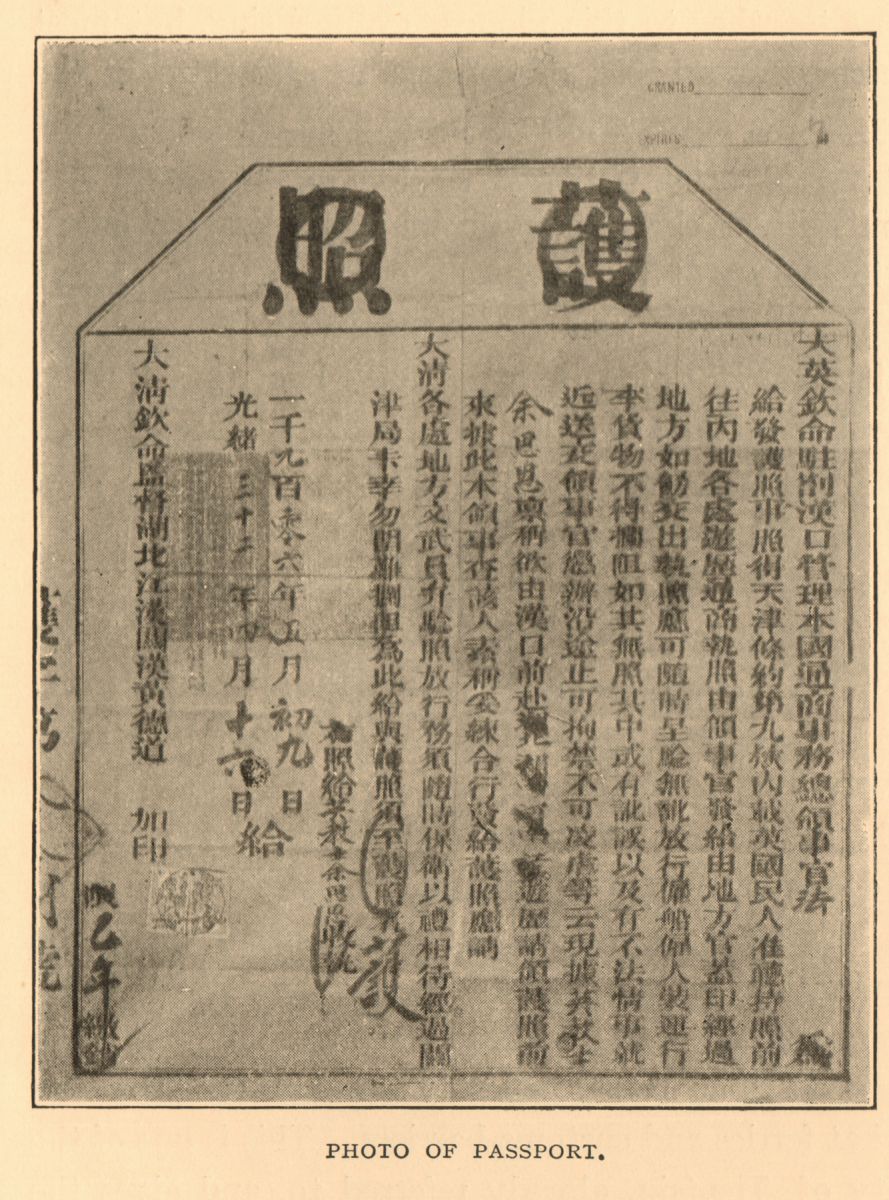 GRANTED
護照
大英欽命駐劄漢口管理本國通商事務總領事官法 為
給發護照事照得天津條約第九款內載英國民人准聽持照前
往內地各處遊歷通商執照由領事官發給由地方官蓋印經過
地方如飭交出執照應可隨時呈驗無訛放行僱船僱人裝運行
李貨物不得攔阻如其無照其中或有訛誤以及有不法情事就
近送交領事官懲辦沿途止可拘禁不可凌虐等云現據英教士
余思恩稟稱欲由漢口前赴湖北湖南遊歷請領護照前
來據此本領事查該人素稱妥練合行發給護照應請
大清各處地方文武員弁驗照放行務須隨時保衛以禮相待經過關
津局卡幸勿留難攔阻為此給與護照須至護照者 護
右照給英教士余思恩收執
一千九百零六年五月初九日
光緒三十二年四月十六日給
大清欽命監督湖北江漢關漢黃德道 加印
限乙年繳銷
PHOTO OF PASSPORT.